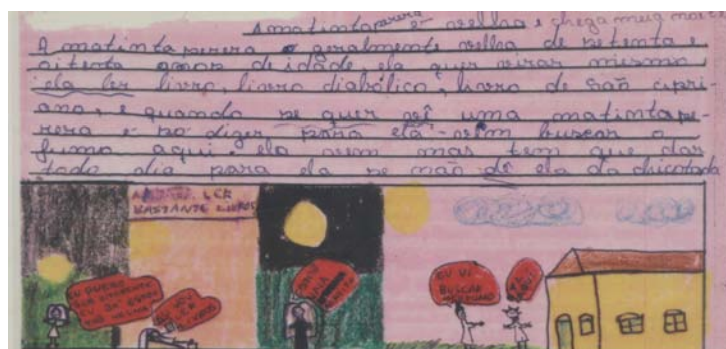 A matinta perera é velha e chega meia noite
A matinta perera é geralmente velha de setenta e
oitenta anos de idade ela quer virar mesmo
ela ler livro, livro diabólico, livro de são cipri-
ano, e quando se quer vê uma matinta pe-
rera é só dizer para ela - vem buscar o
fumo aqui. ela vem mas tem que dar
todo dia para ela se não dê ela da chicotada
LER
BASTANTE LIVROS
EU QUERO
EU JÁ ESTOU
VELHA
EU VOU
LER
LIVROS
EU VI
BUSCAR
FUMO